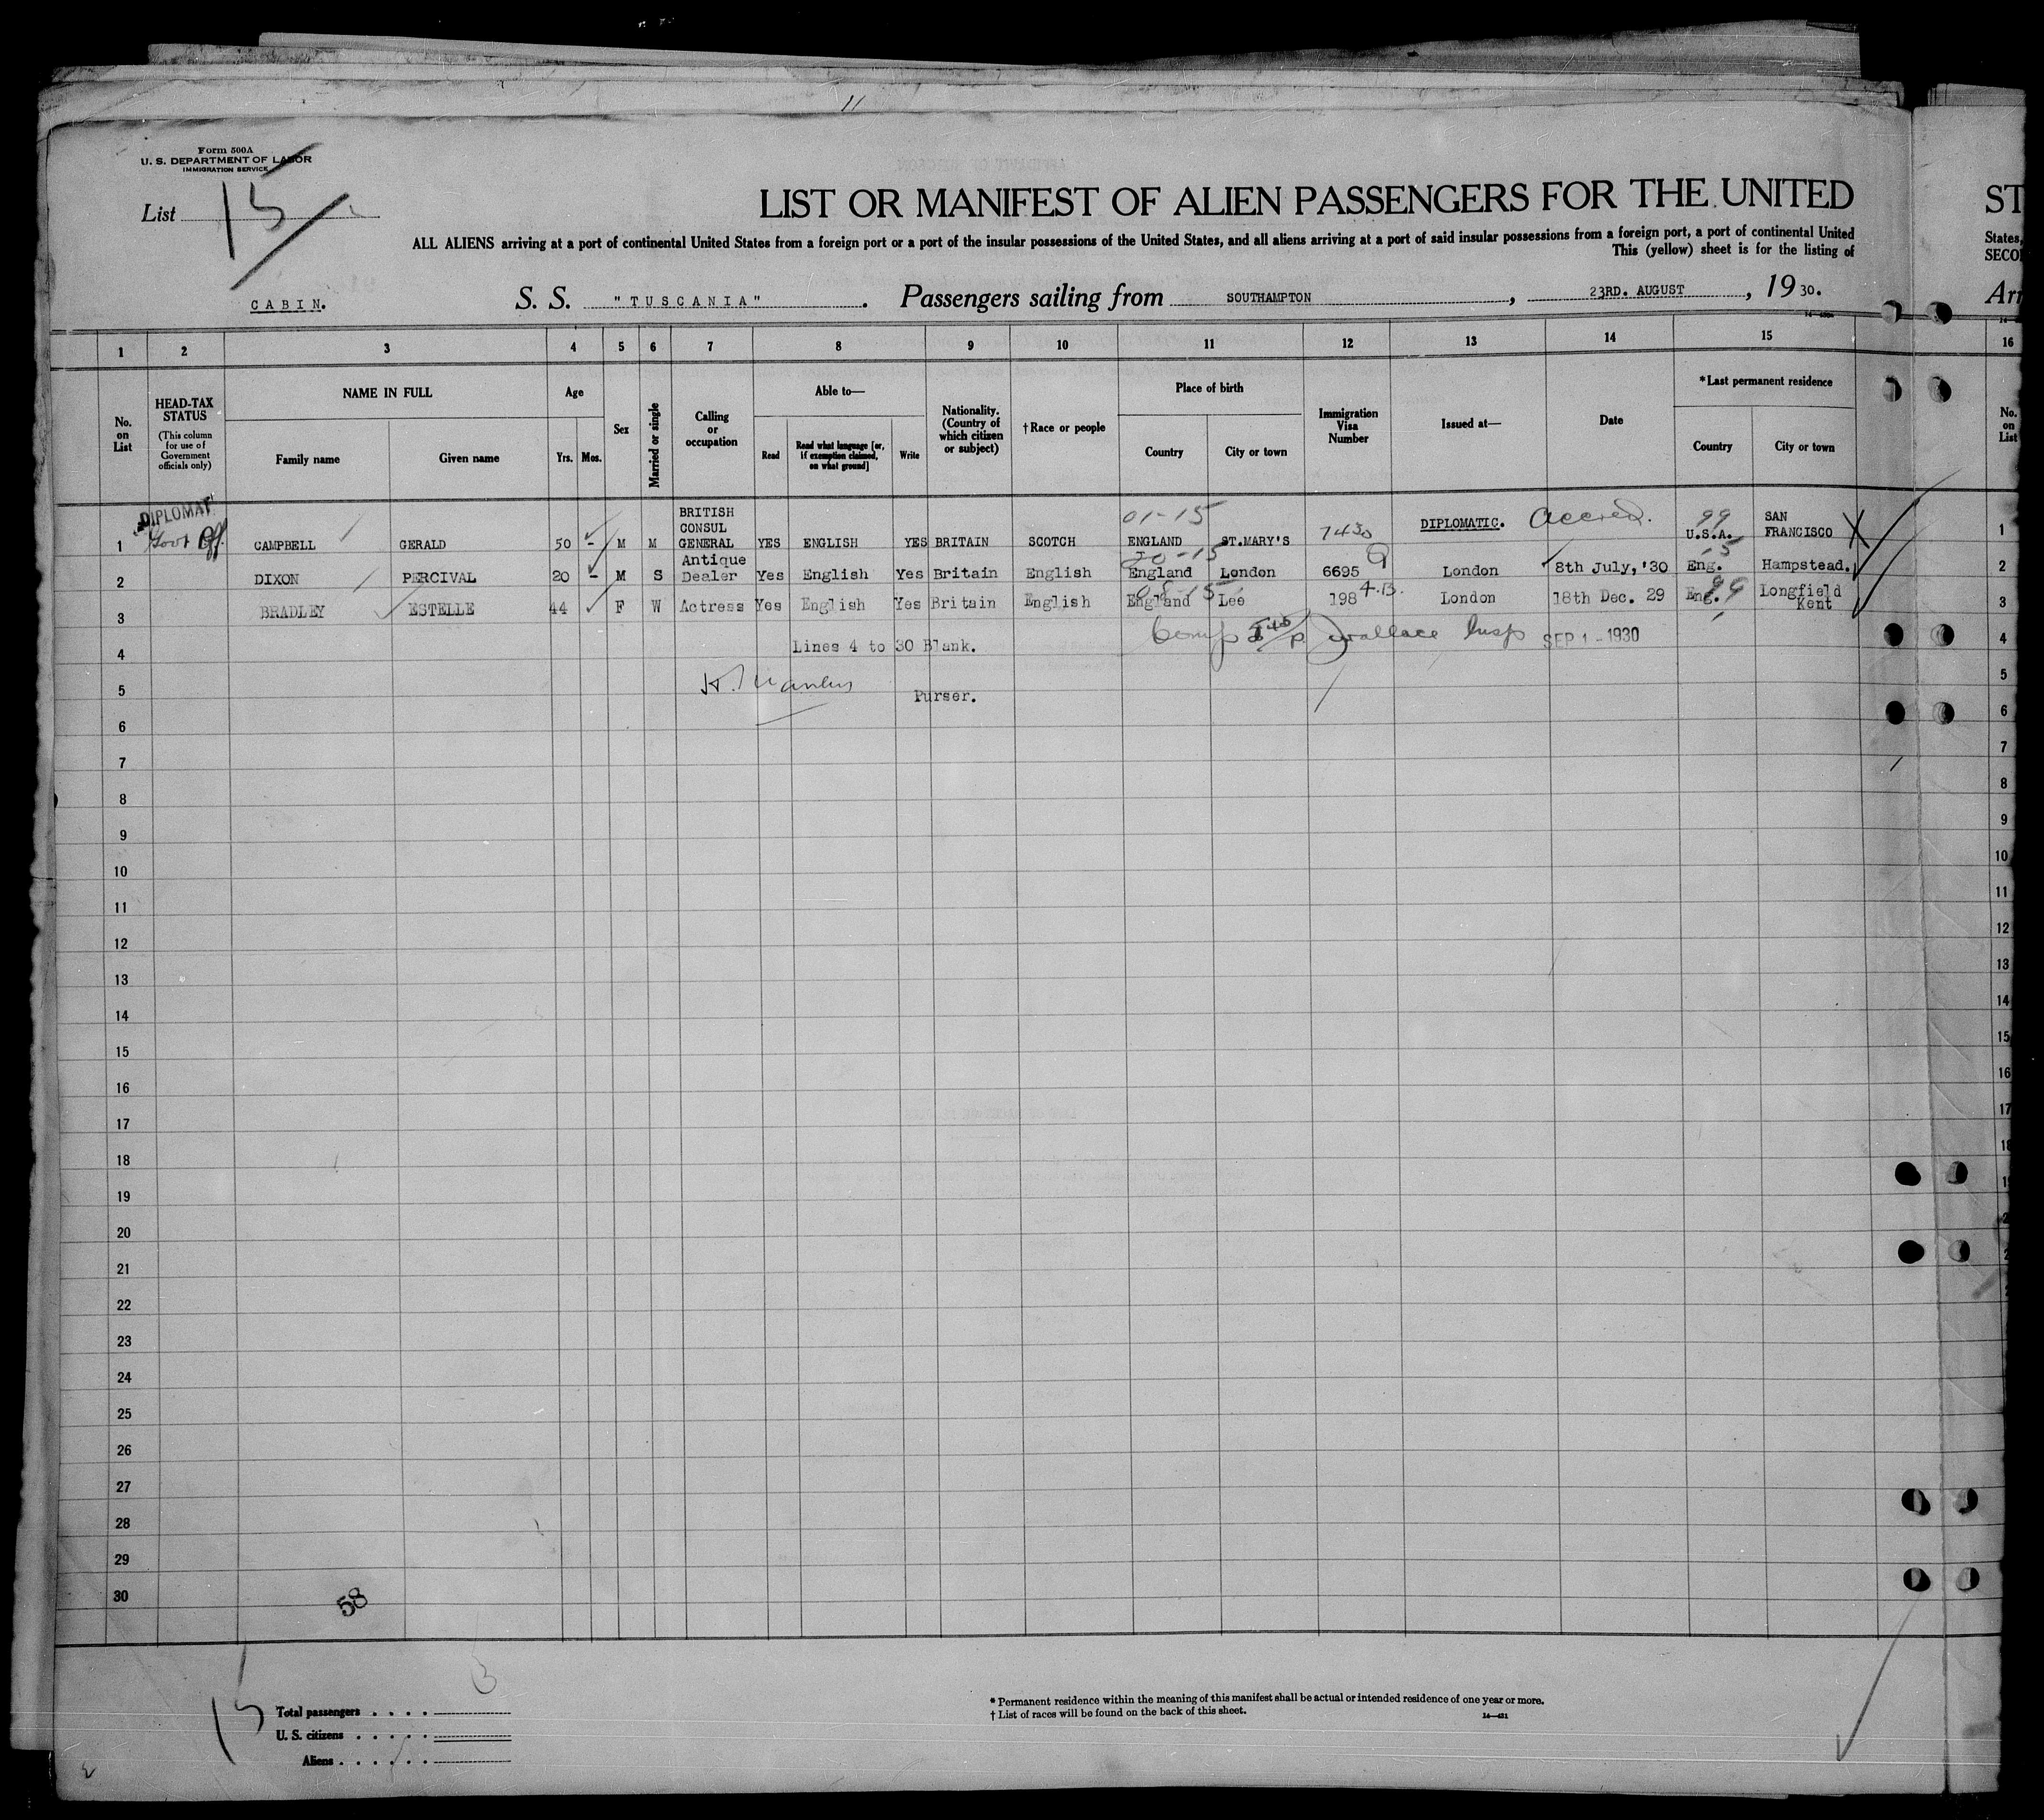 11
Form 500A
U. S. DEPARTMENT OF LABOR
IMMIGRATION SERVICE
List 15
LIST OR MANIFEST OF ALIEN PASSENGERS FOR THE UNITED
ALL ALIENS arriving at a port of continental United States from a foreign port or a port of the insular possessions of the United States, and all aliens arriving at a port of said insular possessions from a foreign port, a port of continental United
This (yellow) sheet is for the listing of
CABIN. S. S. "TUSCANIA". Passengers sailing from SOUTHAMPTON, 23RD. AUGUST, 1930.
ST
States,
SECO
Arr
1 2 3 4 5 6 7 8 9 10 11 12 13 14 15 16
No. on List
HEAD-TAX STATUS
(This column for use of Government officials only)
NAME IN FULL
Family name Given name
Age
Yrs. Mos.
Sex
Married or single
Calling or occupation
Able to—
Read
Read what language [or, if exemption claimed, on what ground]
Write
Nationality. (Country of which citizen or subject)
†Race or people
Place of birth
Country City or town
Immigration Visa Number
Issued at—
Date
*Last permanent residence
Country City or town
No. on List
DIPLOMAT
Govt Off.
01-15
1 CAMPBELL GERALD 50 - M M BRITISH CONSUL GENERAL YES ENGLISH YES BRITAIN SCOTCH ENGLAND ST.MARY'S 7430 DIPLOMATIC. Accred. 99 U.S.A. SAN FRANCISCO X 1
2 DIXON PERCIVAL 20 - M S Antique Dealer Yes English Yes Britain English England London 6695 London 8th July,'30 Eng. Hampstead. 2
3 BRADLEY ESTELLE 44 F W Actress Yes English Yes Britain English England Lee 198 4.B. London 18th Dec. 29 Eng. 99 Longfield Kent 3
4 Lines 4 to 30 Blank. Wallace Insp SEP 1 - 1930 4
5 Purser. 5
6 6
7 7
8 8
9 9
10 10
11 11
12 12
13 13
14 14
15 15
16 16
17 17
18 18
19
20
21
22
23
24
25
26
27
28
29
30
58
15
3
Total passengers
U. S. citizens
Aliens
* Permanent residence within the meaning of this manifest shall be actual or intended residence of one year or more.
† List of races will be found on the back of this sheet.